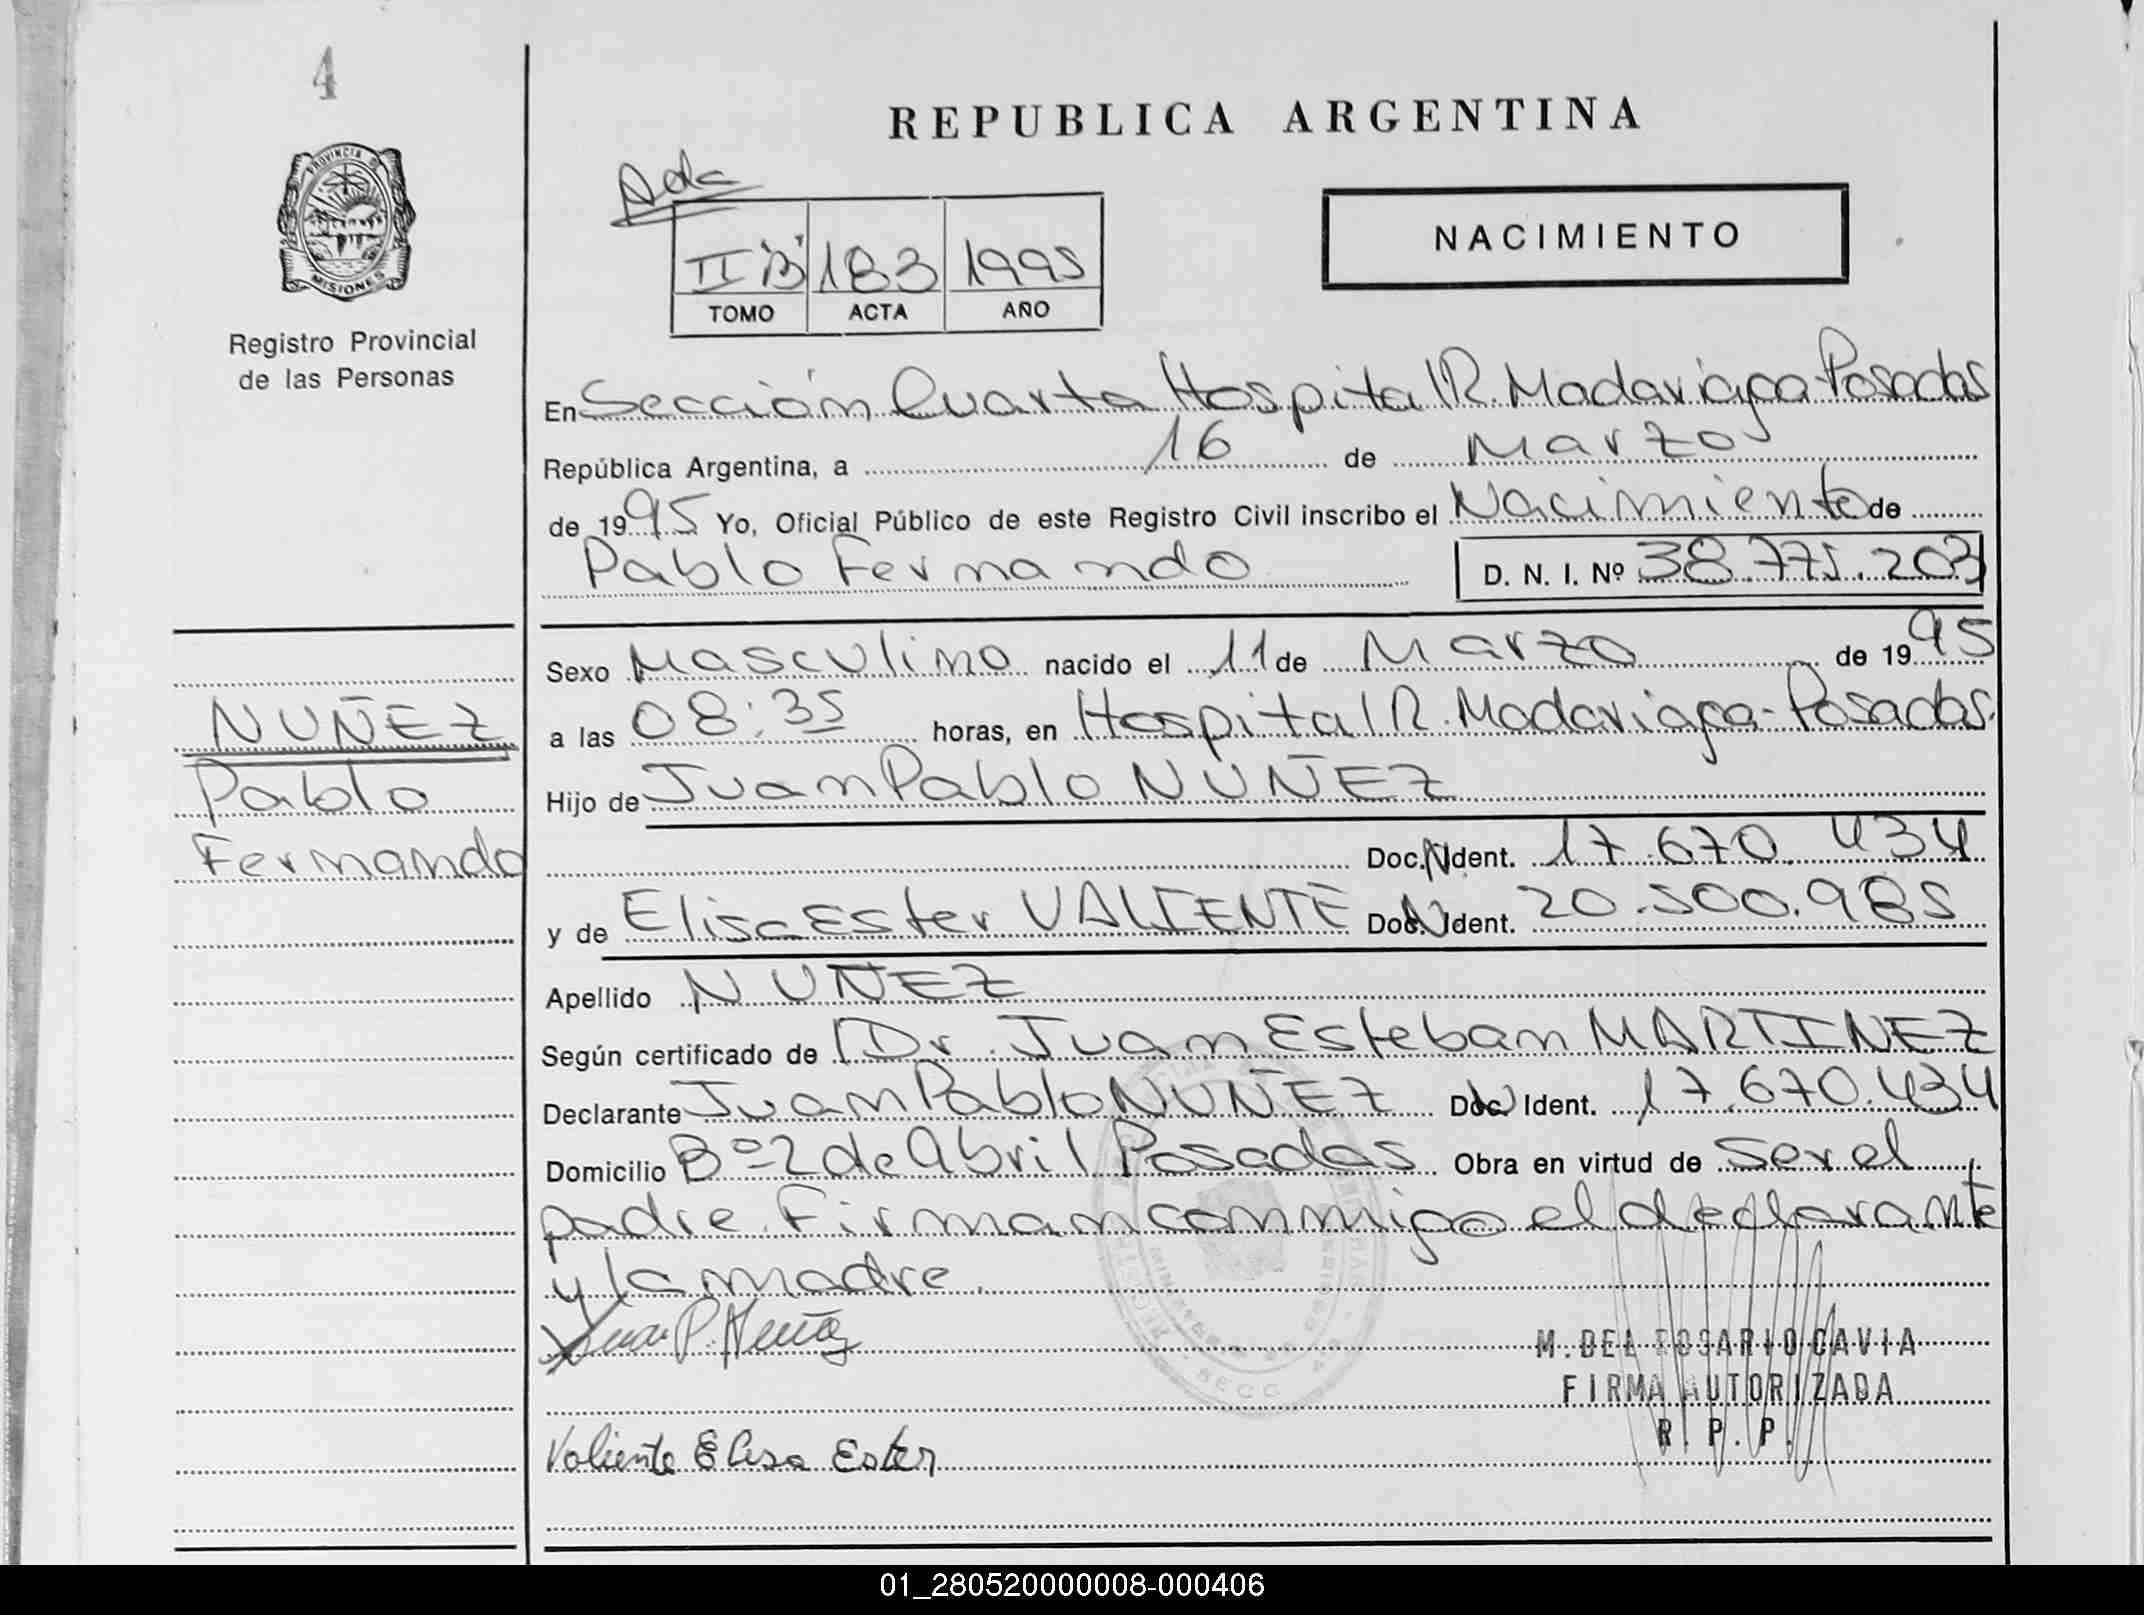 4
REPUBLICA ARGENTINA
PROVINCIA DE
MISIONES
II "B" 183 1995
TOMO ACTA AÑO
NACIMIENTO
Registro Provincial
de las Personas
En Sección Cuarta Hospital R. Madariaga-Posadas
República Argentina, a 16 de Marzo
de 1995 Yo, Oficial Público de este Registro Civil inscribo el Nacimiento de
Pablo Fernando D. N. I. Nº 38.775.203
Sexo Masculino nacido el 11 de Marzo de 1995
NUÑEZ
a las 08:35 horas, en Hospital R. Madariaga-Posadas.
Pablo
Hijo de Juan Pablo NUÑEZ
Fernando
Doc. N Ident. 17.670.434
y de Elisa Ester VALIENTE Doc. N Ident. 20.500.985
Apellido NUÑEZ
Según certificado de Dr. Juan Esteban MARTINEZ
Declarante Juan Pablo NUÑEZ Doc. Ident. 17.670.434
Domicilio Bº 2 de Abril Posadas Obra en virtud de ser el
padre. Firman conmigo el declarante
y la madre.
Juan P. Nuñez
M. DEL ROSARIO CAVIA
FIRMA AUTORIZADA
R. P. P.
Valiente Elisa Ester
01_280520000008-000406